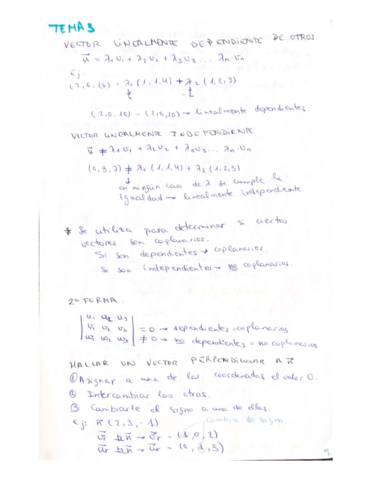 TEMA 3
VECTOR LINEALMENTE DEPENDIENTE DE OTROS
u = λ₁v₁ + λ₂v₂ + λ₃v₃ ... λn·vn
Ej:
λ₁(1,1,4) + λ₂(1,2,3)
linealmente dependientes.
VECTOR LINEALMENTE INDEPENDIENTE
≠ λ₁v₁ + λ₂v₂ + λ₃v₃ ... λn·vn
(0,3,7) ≠ λ₁(1,1,4) + λ₂(1,2,3)
en ningún caso de λ se cumple la
igualdad → linealmente independiente
* Se utiliza para determinar si ciertos
vectores son coplanarios.
Si son dependientes → coplanarios.
Si son independientes → no coplanarios.
2ª FORMA.
|u₁ u₂ u₃|
|v₁ v₂ v₃| = 0 → dependientes = coplanarios
|w₁ w₂ w₃| ≠ 0 → no dependientes = no coplanarios
HALLAR UN VECTOR PERPENDICULAR A n
① Asignar a una de las coordenadas el valor 0.
② Intercambiar las otras.
③ Cambiarle el signo a una de ellas.
Ej: n(2,3,-1)
cambia de signo
(1,0,2)
(0,1,3)